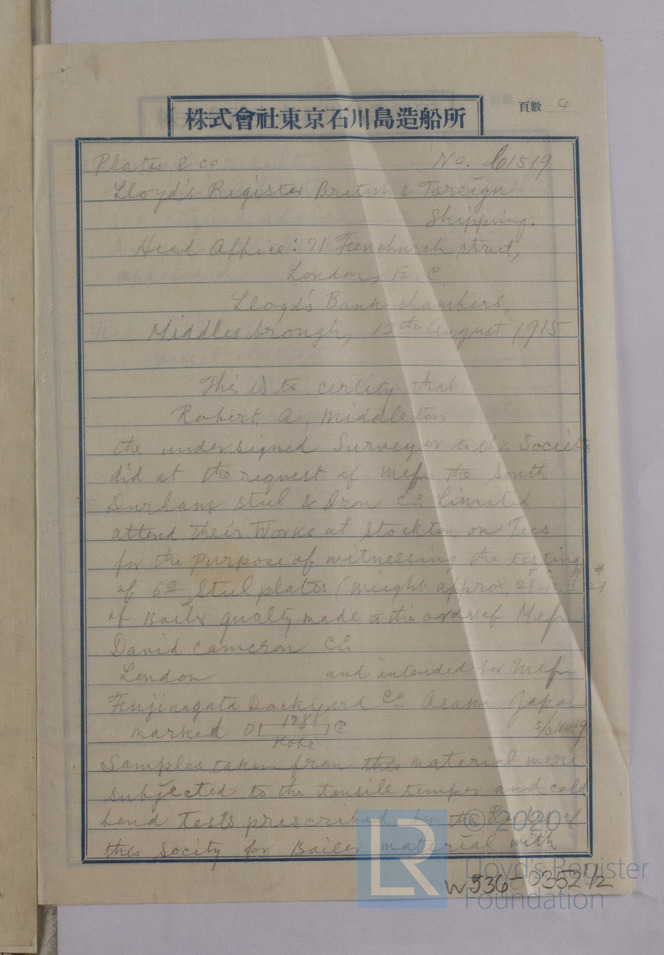 頁數 4
株式會社東京石川島造船所
Plates & Co No. 61519
Lloyd's Register British & Foreign
Shipping.
Head Office: 71 Fenchurch street,
London, E. C
Lloyd's Bank chambers,
Middlesbrough, 12th August 1915
This is to certify that
Robert A. Middleton
the undersigned Surveyor to this Society
did at the request of Mess the South
Durham steel & Iron Co limited
attend their Works at Stockton on Tees
for the purpose of witnessing the testing
of 62 Steel plates (Weight approx
of Boiler quality made to the order of Mess
David Cameron Co
London and intended for Mess
Fujinagata Dockyard Co Osaka Japan
marked 128
Kobe
Samples taken from this material were
subjected to the tensile temper and cold
bend tests prescribed by the Rules of
this Socity for Boiler material with
LR
© 2020
Lloyd's Register
Foundation
W936-0352 1/2